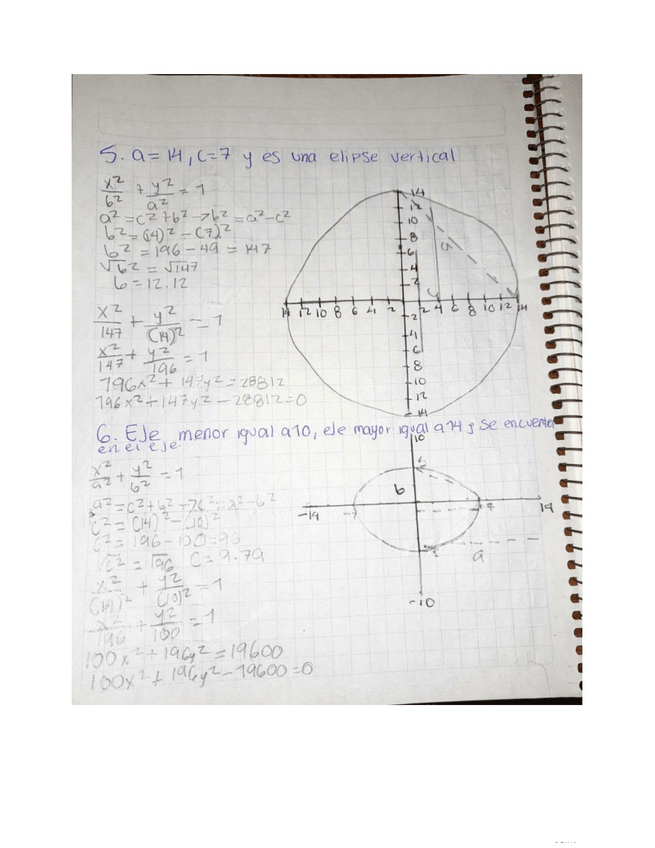 5. a= 14, c=7 y es una elipse vertical
x²/b² + y²/a² = 1
a² = c² + b² -> b² = a² - c²
b² = (14)² - (7)²
b² = 196 - 49 = 147
√b² = √147
b = 12.12
x²/147 + y²/(14)² = 1
x²/147 + y²/196 = 1
196x² + 147y² = 28812
196x² + 147y² - 28812 = 0
14
12
10
8
6
4
2
14 12 10 8 6 4 2 2 4 6 8 10 12 14
2
4
6
8
10
12
14
6. Eje menor igual a 10, eje mayor igual a 14 y se encuentra
en el eje
x²/a² + y²/b² = 1
a² = c² + b² -> c² = a² - b²
c² = (14)² - (10)²
c² = 196 - 100 = 96
√c² = √96 c = 9.79
x²/(14)² + y²/(10)² = 1
x²/196 + y²/100 = 1
100x² + 196y² = 19600
100x² + 196y² - 19600 = 0
10
b
-14
14
a
-10